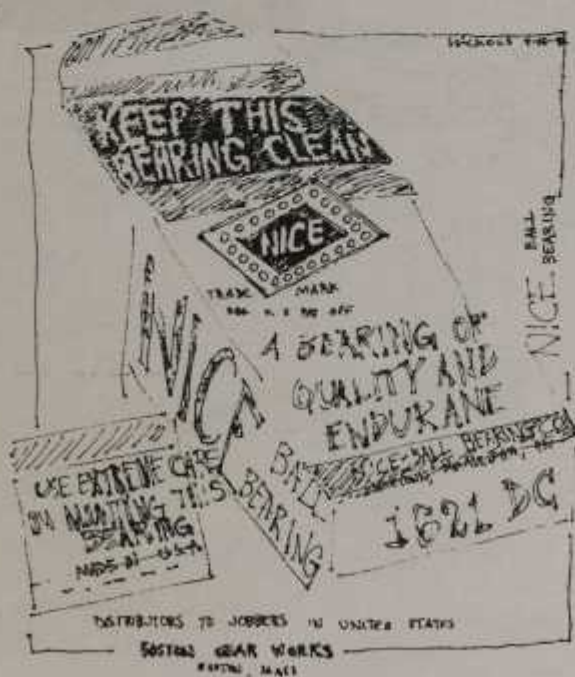 KEEP THIS
BEARING CLEAN
NICE
TRADE MARK
REG U S PAT OFF
A BEARING OF
QUALITY AND
ENDURANE
NICE BALL BEARING CO
1621 DC
NICE
BALL
BEARING
NICE BALL
BEARING
USE EXTREME CARE
IN
BEARING
MADE IN U.S.A
DISTRIBUTORS TO JOBBERS IN UNITED STATES
BOSTON GEAR WORKS
BOSTON, MASS